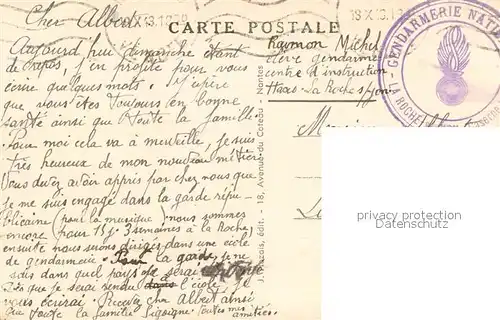 Cher Albert
CARTE POSTALE
Aujourd'hui dimanche étant
de repos, j'en profite pour vous
écrire quelques mots. J'espère
que vous êtes toujours en bonne
santé ainsi que toute la famille.
Pour moi cela va à merveille, je suis
très heureux de mon nouveau métier
Vous devez avoir appris par chez nous que
je me suis engagé dans la garde répu-
blicaine (pour la musique) nous sommes
encore pour 15j 3 semaines à la Roche
ensuite nous serons dirigés dans une école
de gendarmerie. Pour la garde, je ne
sais dans quel pays se
Dès que je serai rendu dans l'école, je
vous écrirai. Recevez cher Albert ainsi
que toute la famille toutes mes
amitiés.
J. édit. - 18, Avenue du Coteau - Nantes
Michel
élève gendarme
centre d'instruction
La Roche s/yon
GENDARMERIE NATI
LA ROCHE
privacy protection
Datenschutz